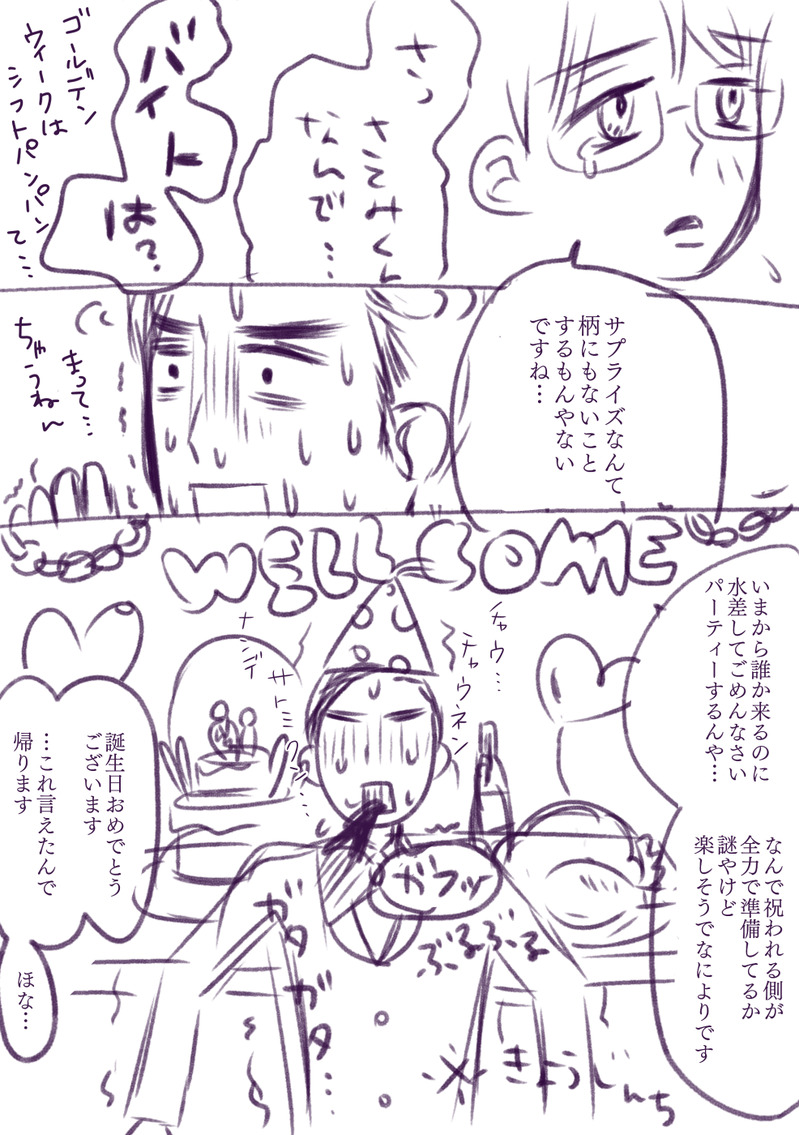 さっ
さとみくん
なんで…
バイト
は?
ゴールデン
ウィークは
シフトパンパン
て…
サプライズなんて
柄にもないこと
するもんやない
ですね…
まって…
ちゃうねん
WELLSOME
いまから誰か来るのに
水差してごめんなさい
パーティーするんや…
なんで祝われる側が
全力で準備してるか
謎やけど
楽しそうでなによりです
チャウ…
チャウネン
ナンデ
サトミクン…
ガフッ
ぶるぶる
ガタ
ガタ…
※きょうじんち
誕生日おめでとう
ございます
…これ言えたんで
帰ります
ほな…